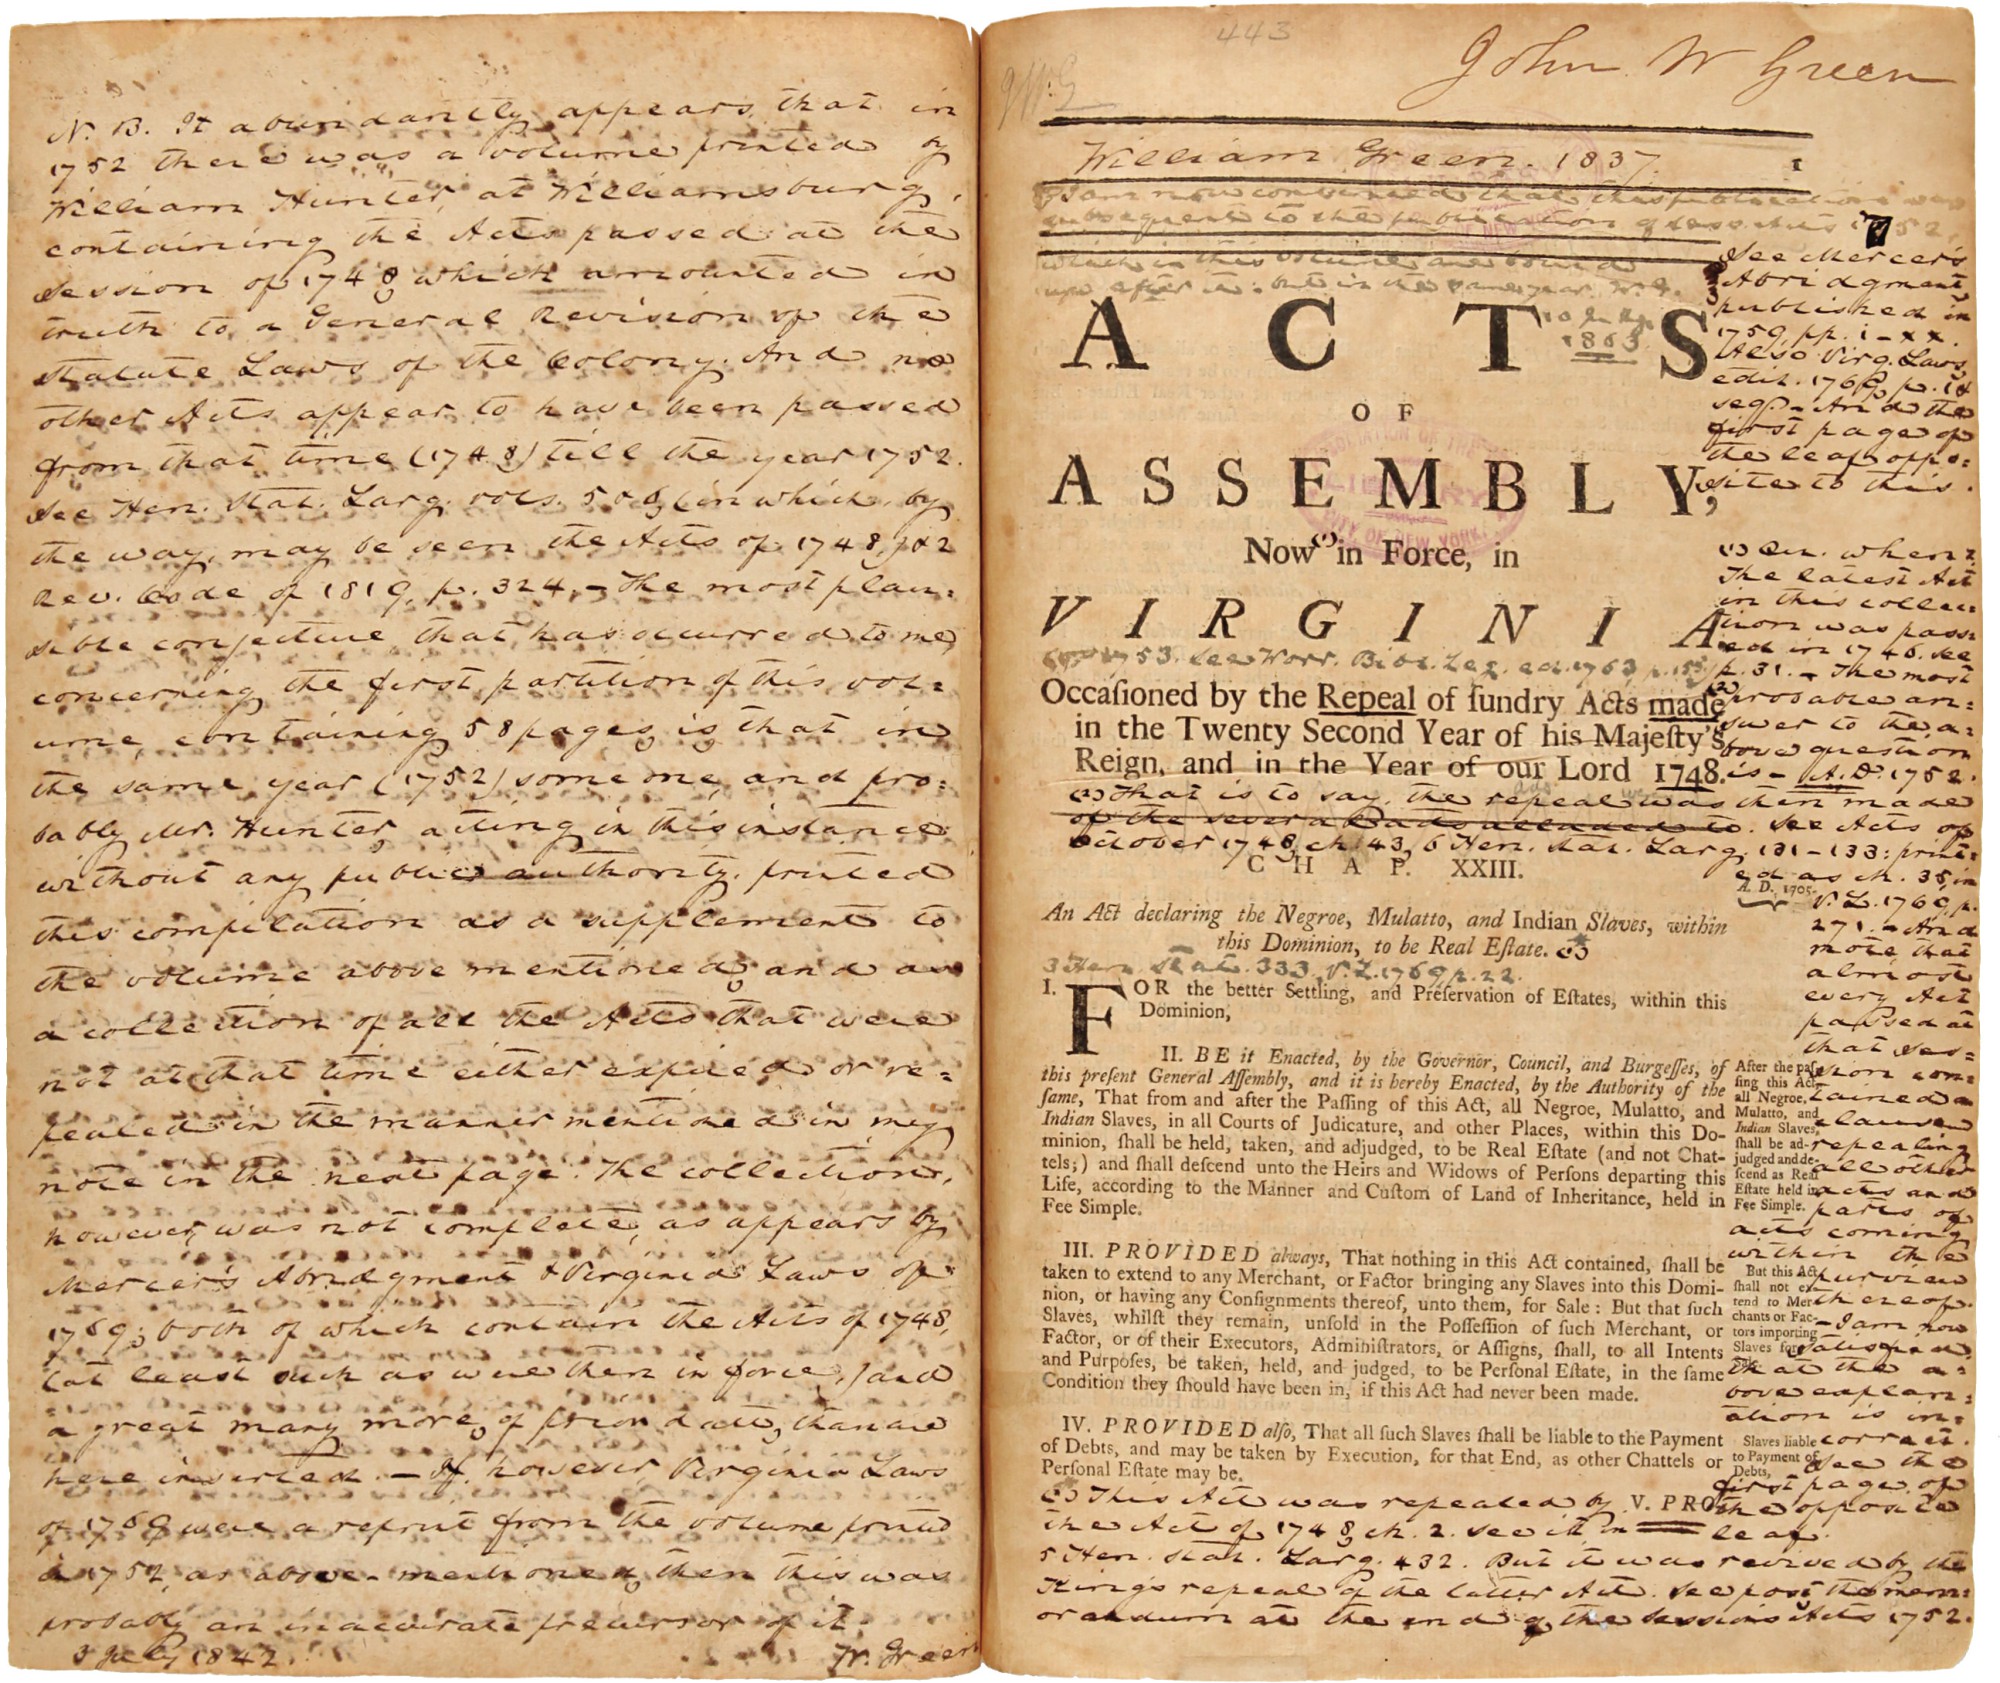 N. B. It abundantly appears that in
1752 there was a volume printed by
William Hunter, at Williamsburg,
containing the Acts passed at the
session of 1748, which amounted in
truth to a General Revision of the
Statute Laws of the Colony. And no
other Acts appear to have been passed
from that time (1748) till the year 1752.
See Hen. Stat. Larg. vols. 5 & 6, (in which, by
the way, may be seen the Acts of 1748,) & 2
Rev. Code of 1819, p. 324. — The most plau=
sible conjecture that has occurred to me,
concerning the first partition of this vol=
ume, containing 58 pages, is that in
the same year (1752) some one, and pro=
bably Mr. Hunter, acting in this instance
without any public authority, printed
this compilation as a supplement to
the volume above mentioned, and as
a collection of all the Acts that were
not at that time either expired or re=
pealed in the manner mentioned in my
note in the next page. The collection,
however, was not complete, as appears by
Mercer's Abridgment & Virginia Laws of
1769; both of which contain the Acts of 1748,
(at least such as were then in force,) and
a great many more, of prior date, than are
here inserted. — If, however, Virginia Laws
of 1769 were a reprint from the volume printed
in 1752, as above-mentioned, then this was
probably an inaccurate precursor of it.
3 July 1842. W. Green
443
John W Green
William Green. 1837.
1
I am now convinced that this publication was
subsequent to the publication of sess. Acts 1752,
which in this volume are bound
up after it: but in the same year. W. G.
1863
ACTS
OF
ASSEMBLY,
Now (1) in Force, in
VIRGINIA
1753. See Worr. Bibl. Leg. ed. 1763 p. 155
Occaſioned by the Repeal of ſundry Acts made (2)
in the Twenty Second Year of his Majeſty's
Reign, and in the Year of our Lord 1748.
(2) That is to say, the repeal was then made
of the several acts alluded to. See Acts of
October 1748, ch. 43, 6 Hen. Stat. Larg. 131-133: print=
ed as ch. 35, in
V.L. 1769, p.
271. — And
note that
almost
every Act
passed at
that Ses=
sion con=
tained a
clause
repealing
all other
acts and
parts of
acts coming
within the
purview
thereof.
— I am now
satisfied
that the a=
bove explan=
ation is in=
correct.
See the
first page of
the opposite
leaf.
See Mercer's
Abridgment
published in
1759, pp. i-xx.
Also Virg. Laws
edit. 1769, p. 1 &
seq. — And the
first page of
the leaf oppo=
site to this.
(1) Qu. when?
The latest Act
in this collec=
tion was pass=
ed in 1746. See
p. 31. — The most
probable an=
swer to the a=
bove question
is — A.D. 1752.
CHAP. XXIII.
A. D. 1705.
An Act declaring the Negroe, Mulatto, and Indian Slaves, within
this Dominion, to be Real Eſtate. (3)
3 Hen. Stat. 333. V.L. 1769, p. 22.
I. FOR the better Settling, and Preſervation of Eſtates, within this
Dominion,
II. BE it Enacted, by the Governor, Council, and Burgeſſes, of
this preſent General Aſſembly, and it is hereby Enacted, by the Authority of the
ſame, That from and after the Paſſing of this Act, all Negroe, Mulatto, and
Indian Slaves, in all Courts of Judicature, and other Places, within this Do-
minion, ſhall be held, taken, and adjudged, to be Real Eſtate (and not Chat-
tels;) and ſhall deſcend unto the Heirs and Widows of Perſons departing this
Life, according to the Manner and Cuſtom of Land of Inheritance, held in
Fee Simple.
After the paſ-
ſing this Act,
all Negroe,
Mulatto, and
Indian Slaves,
ſhall be ad-
judged and de-
ſcend as Real
Eſtate held in
Fee Simple.
III. PROVIDED always, That nothing in this Act contained, ſhall be
taken to extend to any Merchant, or Factor bringing any Slaves into this Domi-
nion, or having any Conſignments thereof, unto them, for Sale: But that ſuch
Slaves, whilſt they remain, unſold in the Poſſeſſion of ſuch Merchant, or
Factor, or of their Executors, Adminiſtrators, or Aſſigns, ſhall, to all Intents
and Purpoſes, be taken, held, and judged, to be Perſonal Eſtate, in the ſame
Condition they ſhould have been in, if this Act had never been made.
But this Act
ſhall not ex-
tend to Mer-
chants or Fac-
tors importing
Slaves for
Sale.
IV. PROVIDED alſo, That all ſuch Slaves ſhall be liable to the Payment
of Debts, and may be taken by Execution, for that End, as other Chattels or
Perſonal Eſtate may be.
Slaves liable
to Payment of
Debts,
V. PRO-
(3) This Act was repealed by
the Act of 1748, ch. 2. See it in
5 Hen. Stat. Larg. 432. But it was revived by the
King's repeal of the latter Act. See post the mem=
orandum at the end of the Sessions Acts 1752.